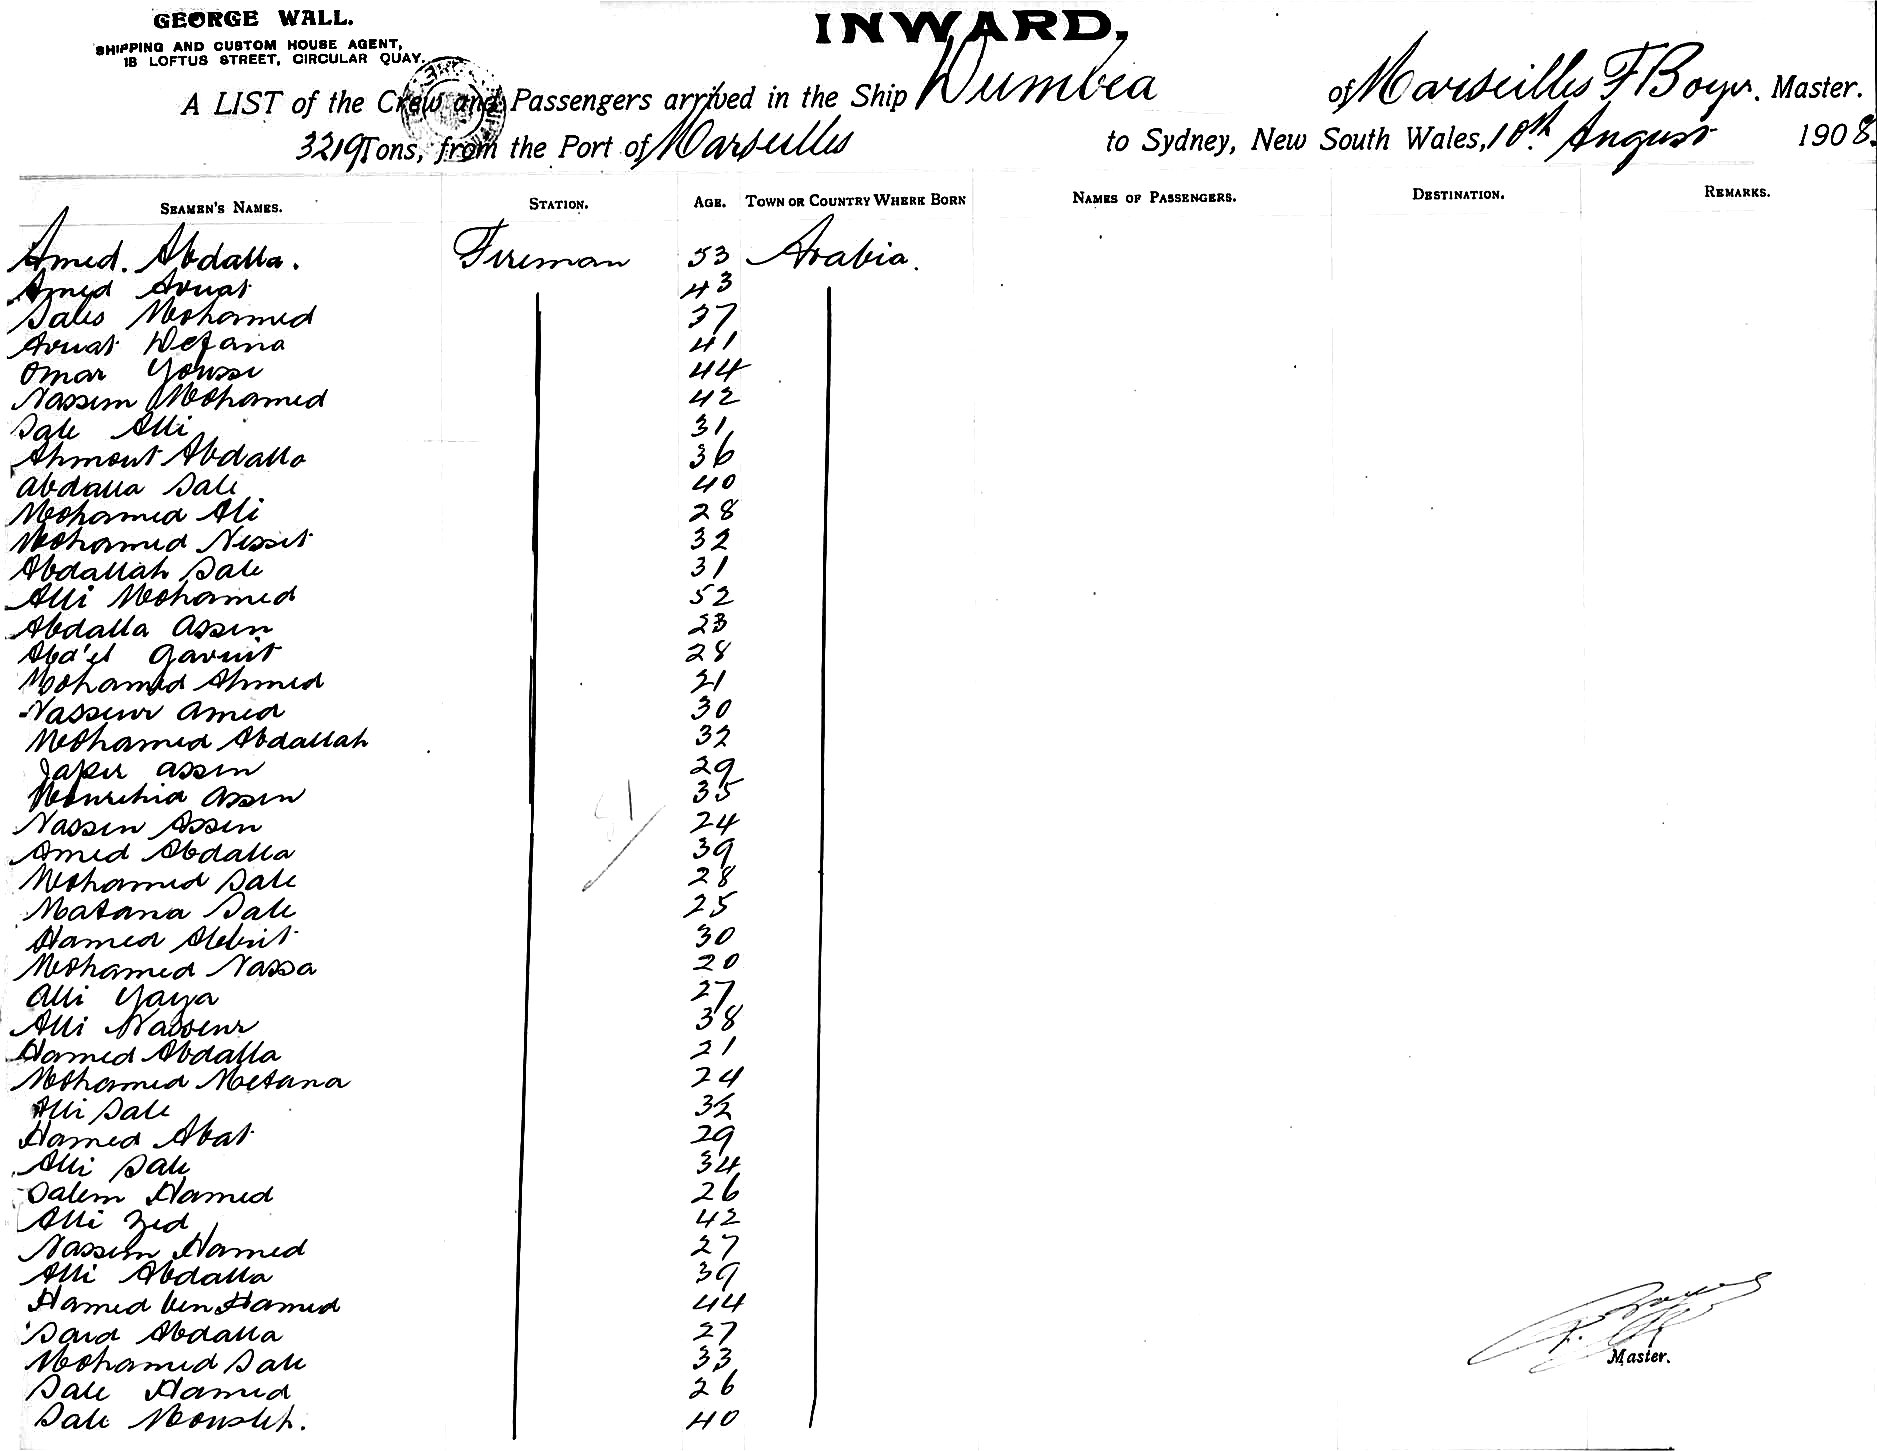 GEORGE WALL.
SHIPPING AND CUSTOM HOUSE AGENT,
18 LOFTUS STREET, CIRCULAR QUAY.
INWARD.
A LIST of the Crew and Passengers arrived in the Ship Dumbea of Marseilles F Boyer. Master.
3219 Tons, from the Port of Marseilles to Sydney, New South Wales, 10th August 1908.
SEAMEN'S NAMES. STATION. AGE. TOWN OR COUNTRY WHERE BORN NAMES OF PASSENGERS. DESTINATION. REMARKS.
Amed. Abdalla. Fireman 53 Arabia.
Amed Aouat 43
Sales Mohamed 37
Aouat Defana 41
Omar Youssi 44
Nassem Mohamed 42
Sale Alli 31
Ahmout Abdalla 36
Abdalla Sale 40
Mohamed Ali 28
Mohamed Nesset 32
Abdallah Sale 31
Alli Mohamed 52
Abdalla Assen 23
Abd'el 28
Mohamed Ahmed 21
Nasseur Amed 30
Mohamed Abdallah 32
Jafer Assen 29
Assen 35
Nassen Assen 24
Amed Abdalla 39
Mohamed Sale 28
Matana Sale 25
Hamed 30
Mohamed Nassa 20
Alli Yaya 27
Alli Nasseur 38
Hamed Abdalla 21
Mohamed Metana 24
Alli Sale 32
Hamed Abat 29
Alli Sale 34
Salem Hamed 26
Alli Zed 42
Nassem Hamed 27
Alli Abdalla 39
Hamed ben Hamed 44
Said Abdalla 27
Mohamed Sale 33
Sale Hamed 26
Sale Mousleh. 40
Master.